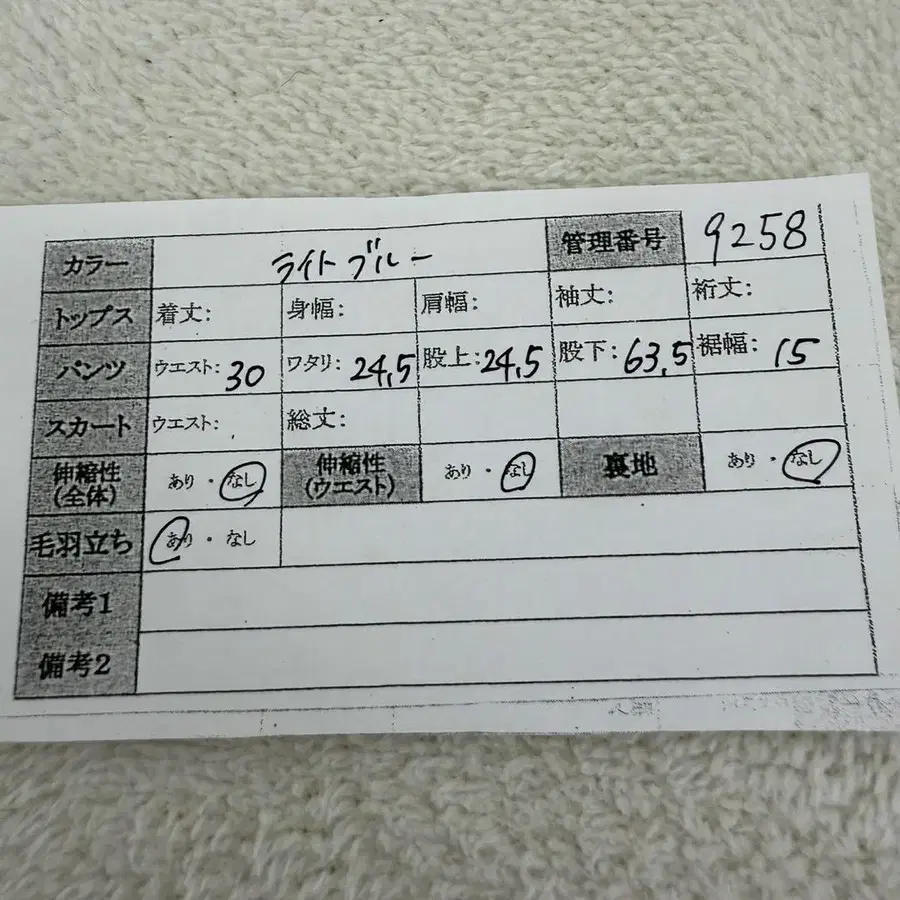 カラー ライトブルー 管理番号 9258
トップス 着丈: 身幅: 肩幅: 袖丈: 裄丈:
パンツ ウエスト: 30 ワタリ: 24,5 股上: 24,5 股下: 63,5 裾幅: 15
スカート ウエスト: 総丈:
伸縮性 (全体) あり・なし 伸縮性 (ウエスト) あり・なし 裏地 あり・なし
毛羽立ち あり・なし
備考1
備考2